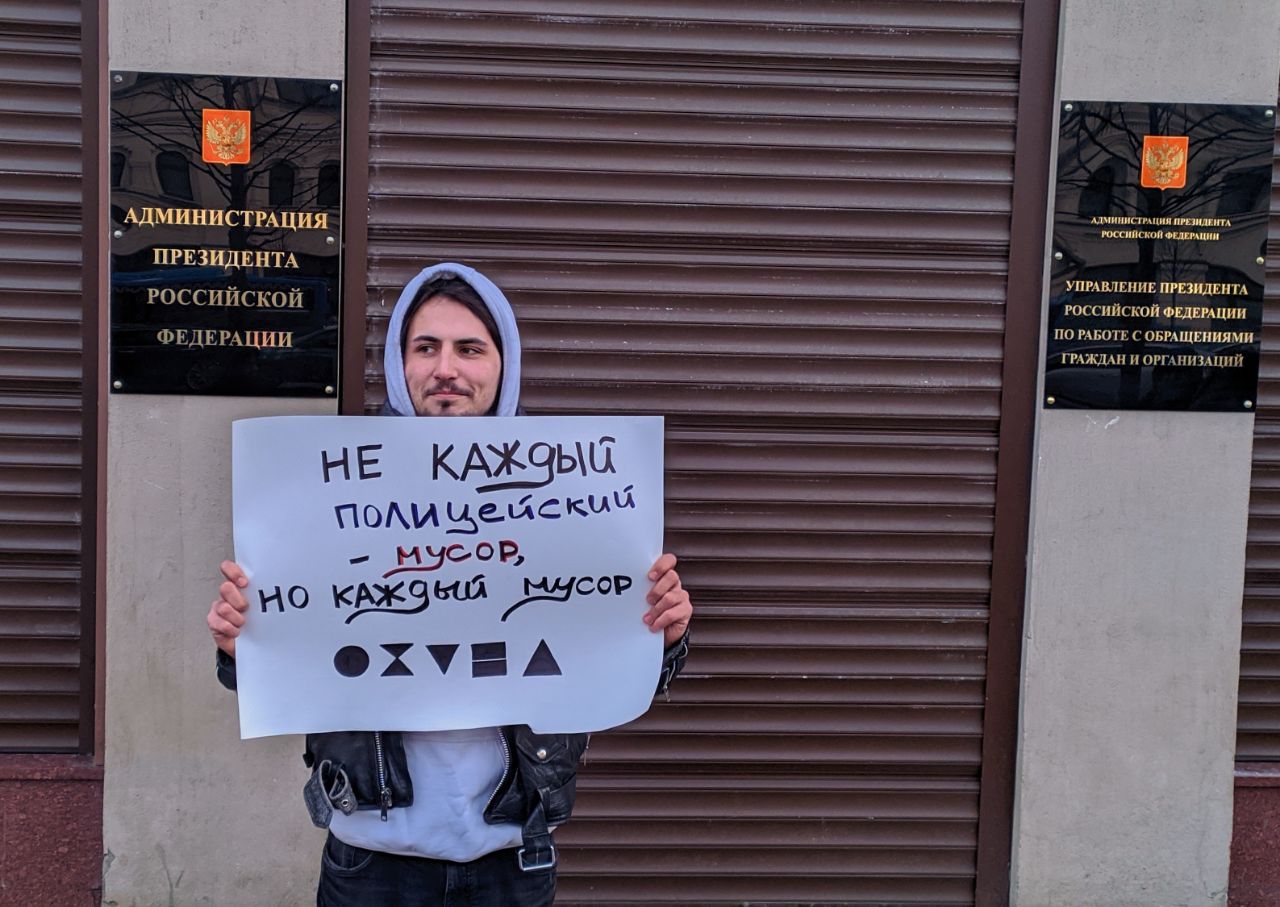 АДМИНИСТРАЦИЯ
ПРЕЗИДЕНТА
РОССИЙСКОЙ
ФЕДЕРАЦИИ
НЕ КАЖДЫЙ
ПОЛИЦЕЙСКИЙ
- МУСОР,
НО КАЖДЫЙ МУСОР
АДМИНИСТРАЦИЯ ПРЕЗИДЕНТА
РОССИЙСКОЙ ФЕДЕРАЦИИ
УПРАВЛЕНИЕ ПРЕЗИДЕНТА
РОССИЙСКОЙ ФЕДЕРАЦИИ
ПО РАБОТЕ С ОБРАЩЕНИЯМИ
ГРАЖДАН И ОРГАНИЗАЦИЙ